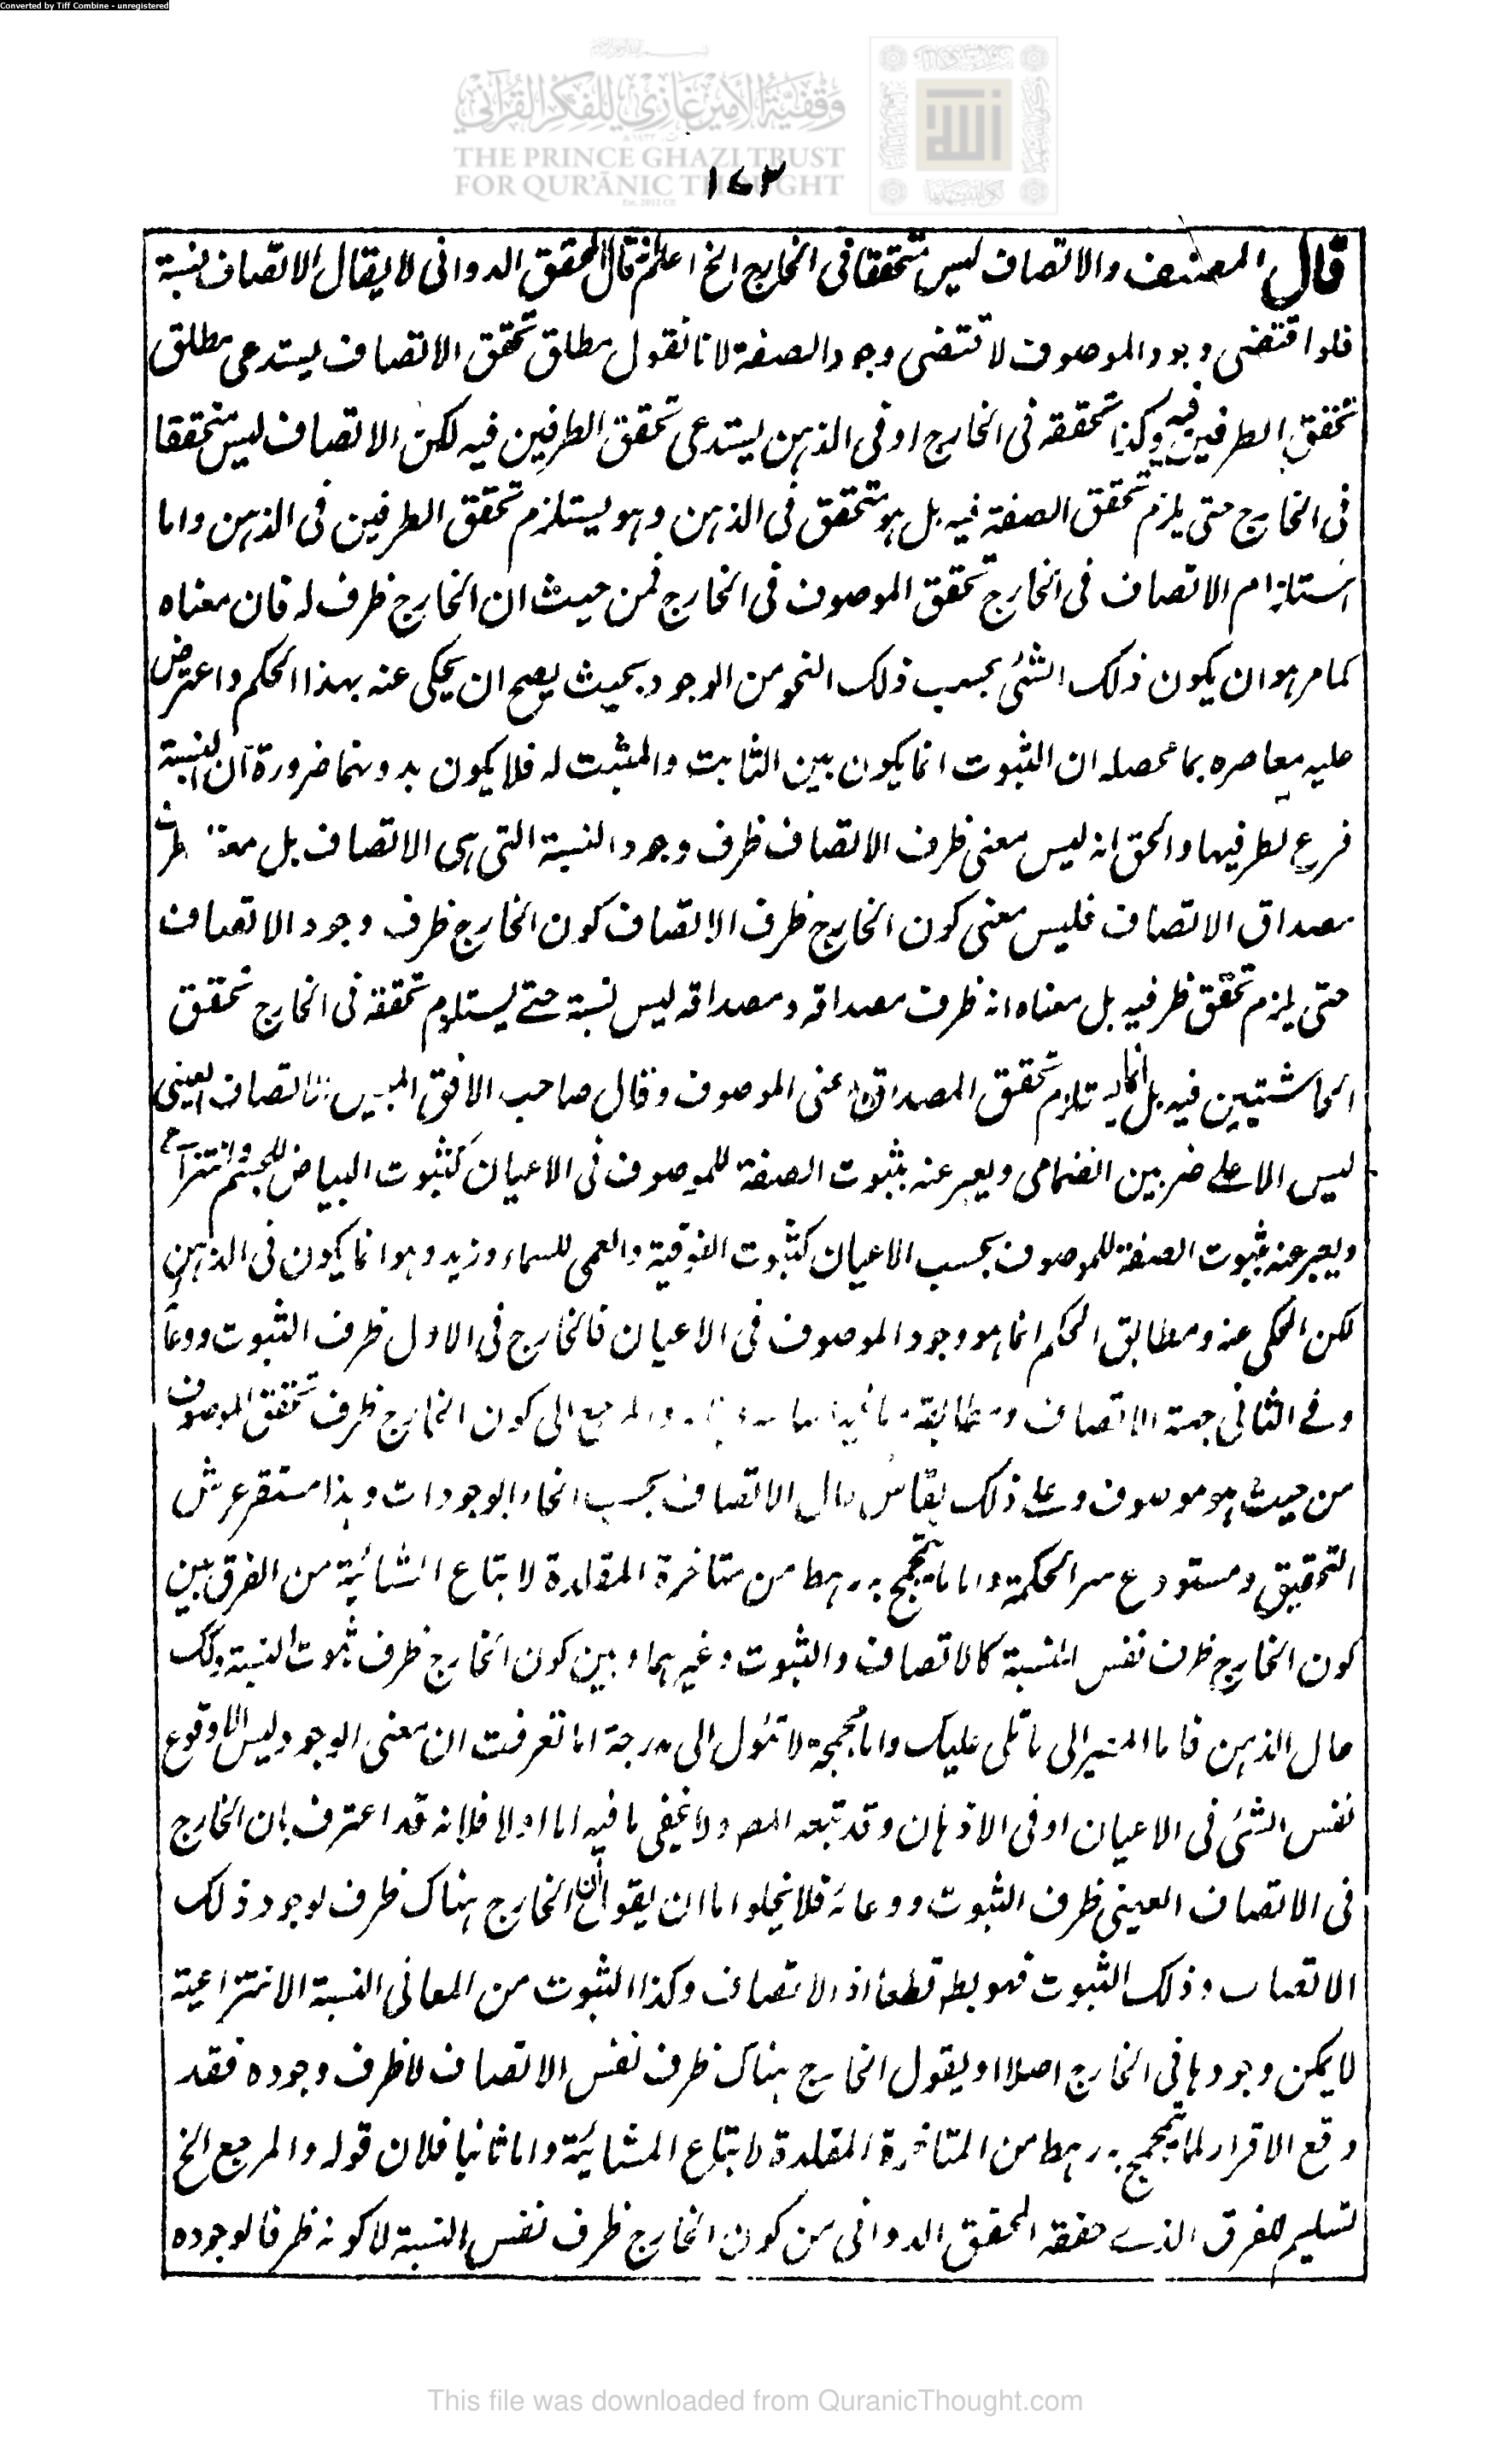 Converted by Tiff Combine - unregistered
وقفية الأمير غازي للفكر القرآني
THE PRINCE GHAZI TRUST
FOR QUR'ĀNIC THOUGHT
Est. 2012 CE
١٧٣
قال المصنف والاتصاف ليس متحققا فى الخارج الخ اعلم انه قال المحقق الدوانى لا يقال الاتصاف نسبة
فلو اقتضى وجود الموصوف لاقتضى وجود الصفة لانا نقول مطلق تحقق الاتصاف يستدعى مطلق
تحقق الطرفين فيه وكذا تحققه فى الخارج او فى الذهن يستدعى تحقق الطرفين فيه لكن الاتصاف ليس متحققا
فى الخارج حتى يلزم تحقق الصفة فيه بل هو متحقق فى الذهن وهو يستلزم تحقق الطرفين فى الذهن واما
استلزام الاتصاف فى الخارج تحقق الموصوف فى الخارج فمن حيث ان الخارج ظرف له فان معناه
كما مر هو ان يكون ذلك الشئ بحسب ذلك النحو من الوجود بحيث يصح ان يحكى عنه بهذا الحكم واعترض
عليه معاصره بما محصله ان الثبوت انما يكون بين الثابت والمثبت له فلا يكون بدونهما ضرورة ان النسبة
فرع لطرفيها والحق انه ليس معنى ظرف الاتصاف ظرف وجود النسبة التى هى الاتصاف بل ظرف
مصداق الاتصاف فليس معنى كون الخارج ظرف الاتصاف كون الخارج ظرف وجود الاتصاف
حتى يلزم تحقق طرفيه بل معناه انه ظرف مصداقه ومصداقه ليس نسبة حتے يستلزم تحققه فى الخارج تحقق
الحاشيتين فيه بل انما يستلزم تحقق المصداق اعنى الموصوف وقال صاحب الافق المبين الاتصاف العينى
ليس الا علے ضربين انضمامى ويعبر عنه بثبوت الصفة للموصوف فى الاعيان كثبوت البياض للجسم وانتزاعى
ويعبر عنه بثبوت الصفة للموصوف بحسب الاعيان كثبوت الفوقية والعمى للسماء وزيد وهو انما يكون فى الذهن
لكن المحكى عنه ومطابق الحكم انما هو وجود الموصوف فى الاعيان فالخارج فى الاول ظرف الثبوت ووعاؤه
وفے الثانى جهة الاتصاف ومطابقه والمرجع الى كون الخارج ظرف تحقق الموصوف
من حيث هو موصوف وعلے ذلك يقاس حال الاتصاف بحسب انحاء الوجودات وهذا مستقر عرش
التحقيق ومستودع سر الحكمة واما ما يتجمجم به رهط من متاخرة المقلدة لاتباع المشائية من الفرق بين
كون الخارج ظرف نفس النسبة كالاتصاف والثبوت وغيرهما وبين كون الخارج ظرف ثبوت النسبة وكك
حال الذهن فاما المصير الى ما تلى عليك واما مجمجة لا تئول الى درجة اما تعرفت ان معنى الوجود ليس الا وقوع
نفس الشئ فى الاعيان او فى الاذهان وقد تبعه المصر ولا يخفى ما فيه اما اولا فلانه قد اعترف بان الخارج
فى الاتصاف العينى ظرف الثبوت ووعائه فلا يخلو اما ان يقول ان الخارج هناك ظرف لوجود ذلك
الاتصاف وذلك الثبوت فهو بط قطعا اذ الاتصاف وكذا الثبوت من المعانى النسبة الانتزاعية
لا يمكن وجودها فى الخارج اصلا او يقول الخارج هناك ظرف نفس الاتصاف لا ظرف وجوده فقد
وقع الاقرار لما يتجمجم به رهط من المتاخرة المقلدة لاتباع المشائية واما ثانيا فلان قوله والمرجع الخ
تسليم للفرق الذے حققه المحقق الدوانى من كون الخارج ظرف نفس النسبة لا كونه ظرفا لوجوده
This file was downloaded from QuranicThought.com